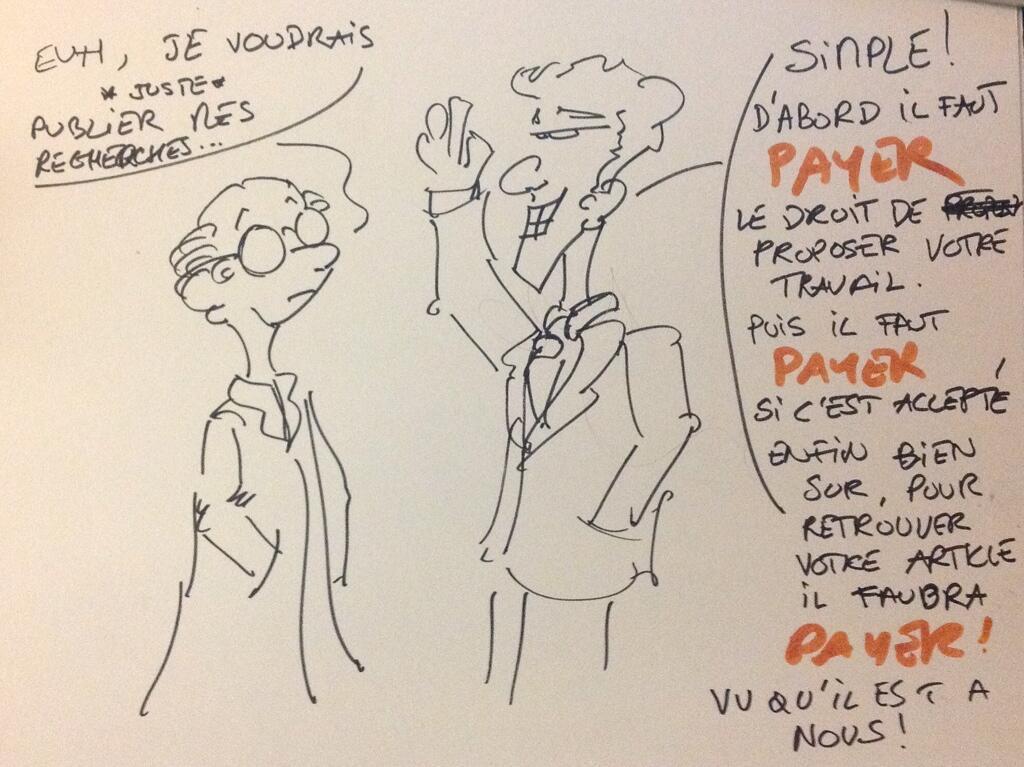 EUH, JE VOUDRAIS
*JUSTE*
PUBLIER MES
RECHERCHES...
SIMPLE!
D'ABORD IL FAUT
PAYER
LE DROIT DE
PROPOSER VOTRE
TRAVAIL.
PUIS IL FAUT
PAYER
SI C'EST ACCEPTÉ
ENFIN BIEN
SUR, POUR
RETROUVER
VOTRE ARTICLE
IL FAUDRA
PAYER!
VU QU'IL EST A
NOUS!